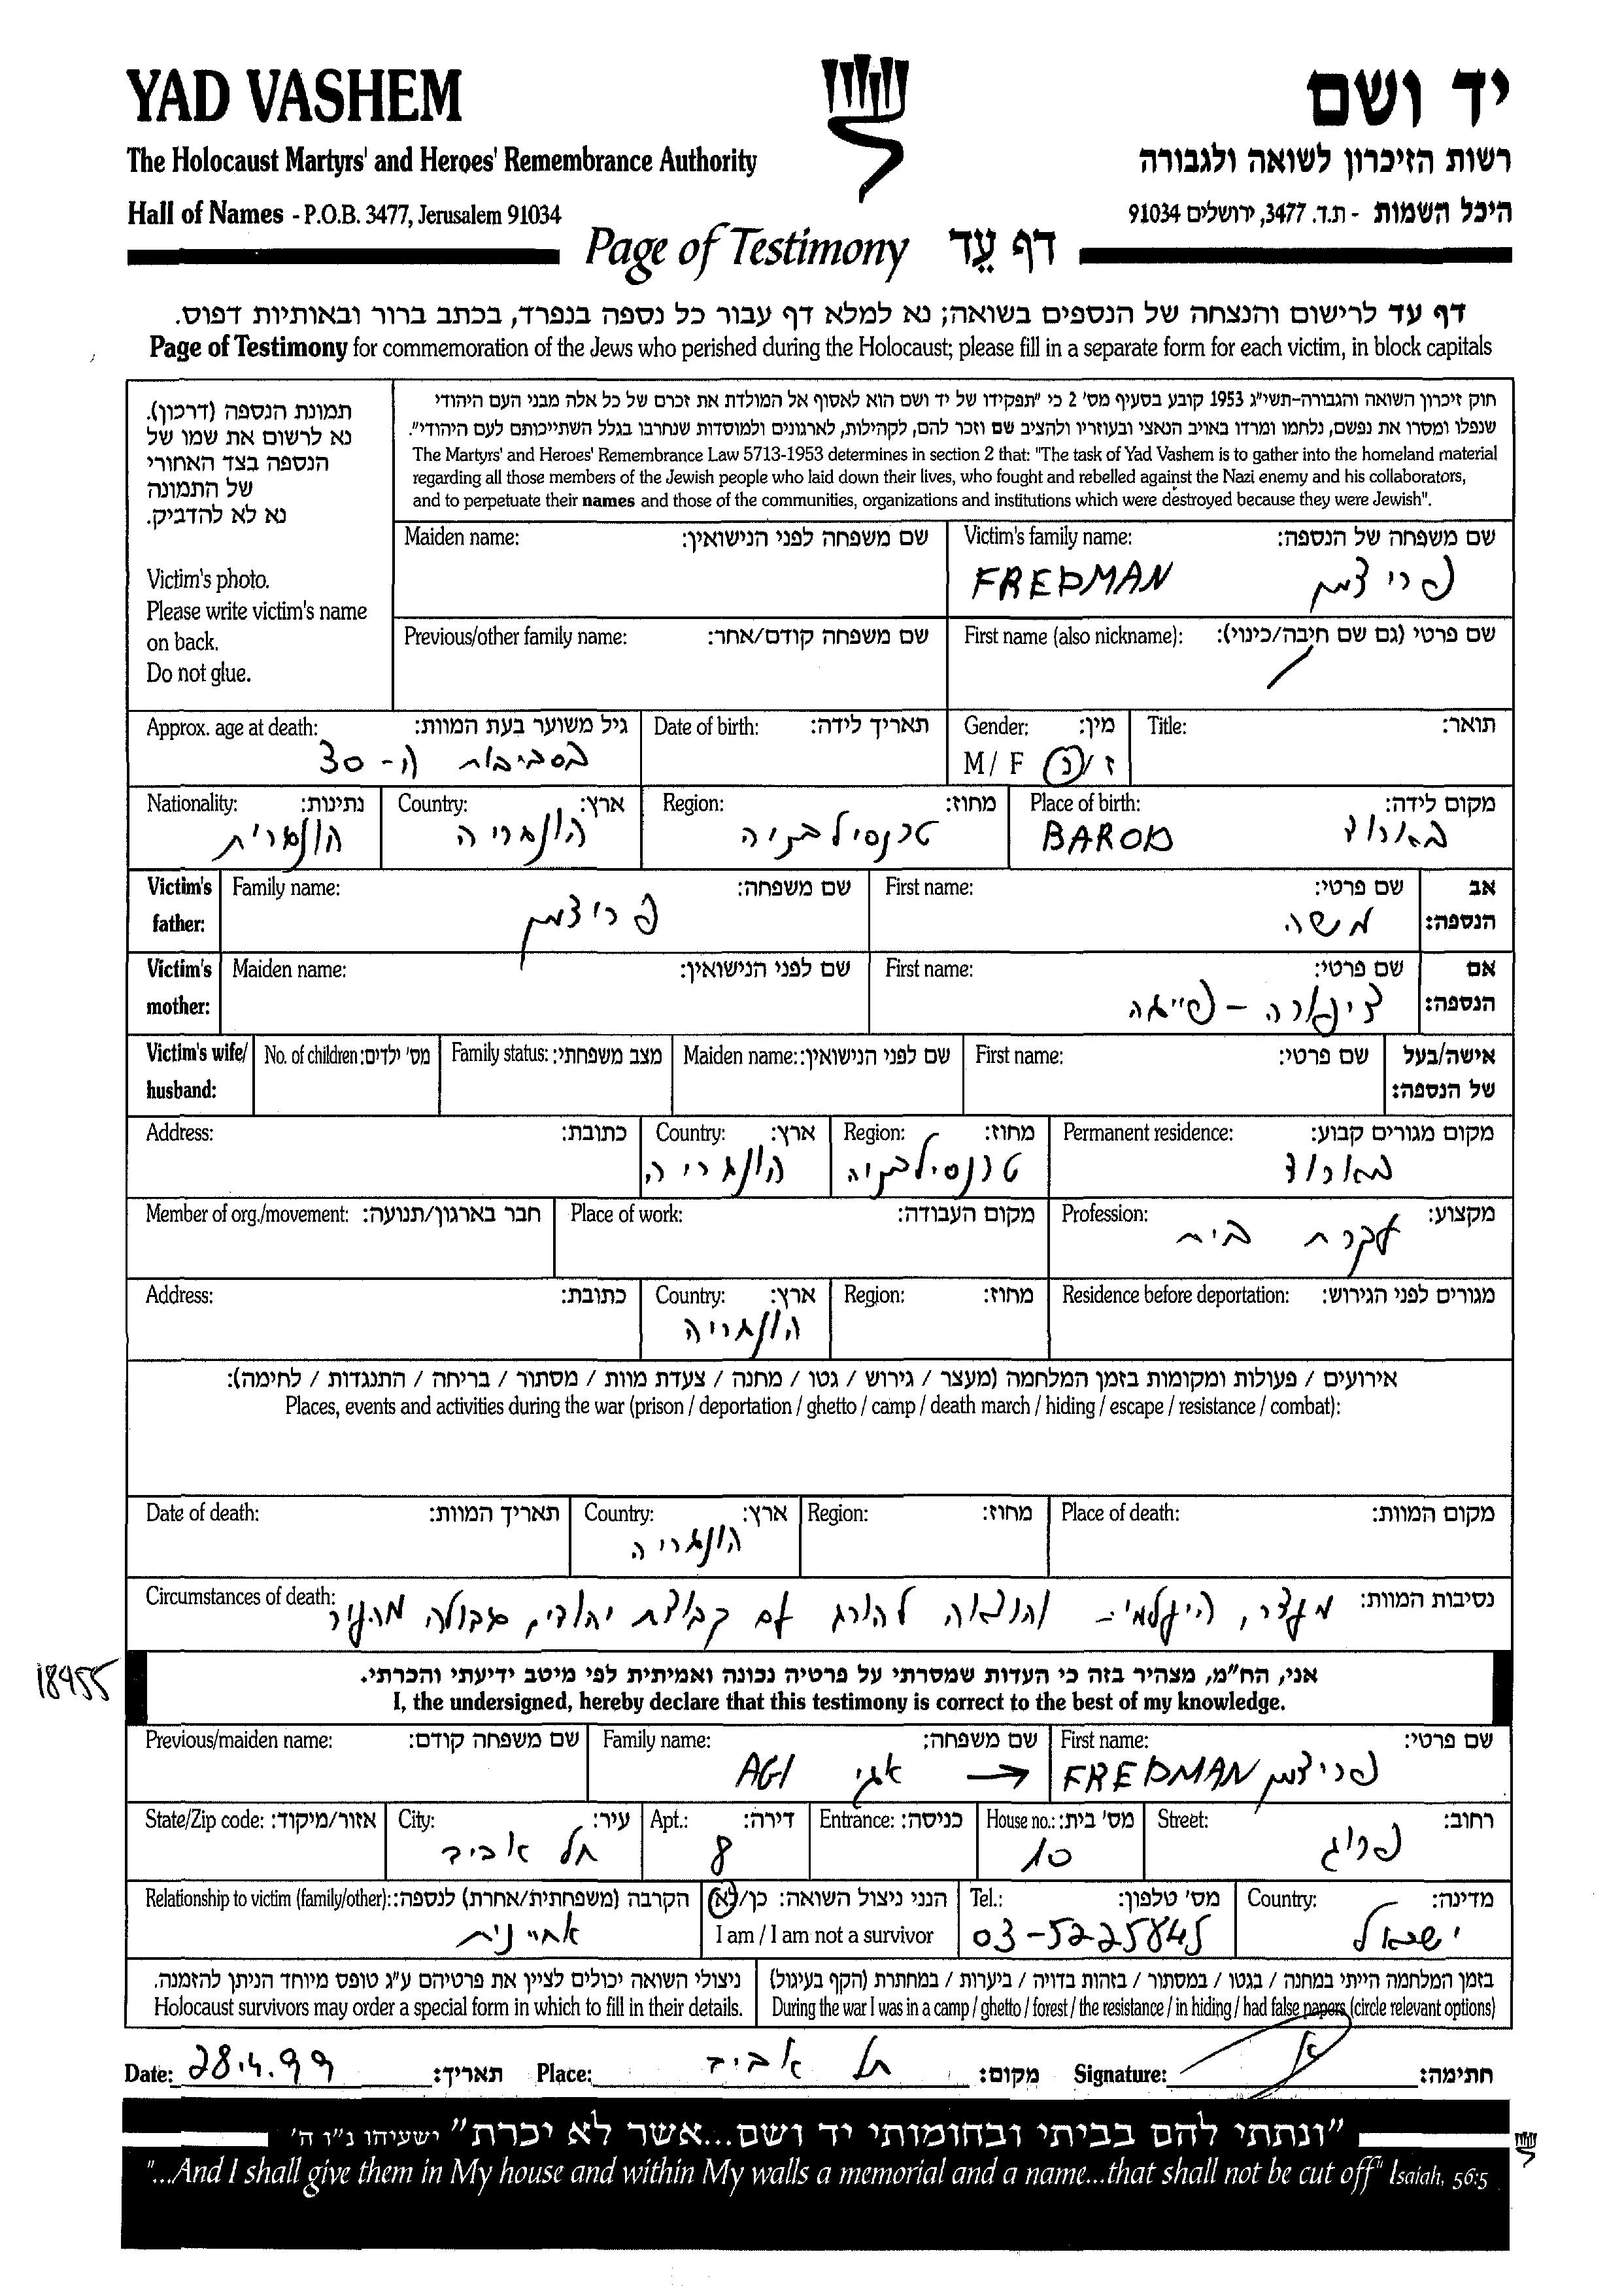 YAD VASHEM
יד ושם
The Holocaust Martyrs' and Heroes' Remembrance Authority
רשות הזיכרון לשואה ולגבורה
Hall of Names - P.O.B. 3477, Jerusalem 91034
היכל השמות - ת.ד. 3477, ירושלים 91034
Page of Testimony דף עֵד
דף עד לרישום והנצחה של הנספים בשואה; נא למלא דף עבור כל נספה בנפרד, בכתב ברור ובאותיות דפוס.
Page of Testimony for commemoration of the Jews who perished during the Holocaust; please fill in a separate form for each victim, in block capitals
תמונת הנספה (דרכון).
נא לרשום את שמו של
הנספה בצד האחורי
של התמונה
נא לא להדביק.
Victim's photo.
Please write victim's name
on back.
Do not glue.
חוק זיכרון השואה והגבורה-תשי"ג 1953 קובע בסעיף מס' 2 כי "תפקידו של יד ושם הוא לאסוף אל המולדת את זכרם של כל אלה מבני העם היהודי
שנפלו ומסרו את נפשם, נלחמו ומרדו באויב הנאצי ובעוזריו ולהציב שם וזכר להם, לקהילות, לארגונים ולמוסדות שנחרבו בגלל השתייכותם לעם היהודי".
The Martyrs' and Heroes' Remembrance Law 5713-1953 determines in section 2 that: "The task of Yad Vashem is to gather into the homeland material
regarding all those members of the Jewish people who laid down their lives, who fought and rebelled against the Nazi enemy and his collaborators,
and to perpetuate their names and those of the communities, organizations and institutions which were destroyed because they were Jewish".
Maiden name: שם משפחה לפני הנישואין:
Victim's family name: שם משפחה של הנספה:
FREDMAN פרידמן
Previous/other family name: שם משפחה קודם/אחר:
First name (also nickname): שם פרטי (גם שם חיבה/כינוי):
Approx. age at death: גיל משוער בעת המוות:
בסביבות ה-30
Date of birth: תאריך לידה:
Gender: מין:
M / F ז/נ
Title: תואר:
Nationality: נתינות:
הונגרית
Country: ארץ:
הונגריה
Region: מחוז:
טרנסילבניה
Place of birth: מקום לידה:
BAROD בארוד
Victim's father: Family name: שם משפחה:
פרידמן
First name: שם פרטי:
משה
אב הנספה:
Victim's mother: Maiden name: שם לפני הנישואין:
First name: שם פרטי:
ציפורה - פייגה
אם הנספה:
Victim's wife/ husband: No. of children: מס' ילדים: Family status: מצב משפחתי: Maiden name: שם לפני הנישואין: First name: שם פרטי: אישה/בעל של הנספה:
Address: כתובת:
Country: ארץ:
הונגריה
Region: מחוז:
טרנסילבניה
Permanent residence: מקום מגורים קבוע:
בארוד
Member of org./movement: חבר בארגון/תנועה: Place of work: מקום העבודה:
Profession: מקצוע:
עקרת בית
Address: כתובת:
Country: ארץ:
הונגריה
Region: מחוז:
Residence before deportation: מגורים לפני הגירוש:
אירועים / פעולות ומקומות בזמן המלחמה (מעצר / גירוש / גטו / מחנה / צעדת מוות / מסתור / בריחה / התנגדות / לחימה):
Places, events and activities during the war (prison / deportation / ghetto / camp / death march / hiding / escape / resistance / combat):
Date of death: תאריך המוות:
Country: ארץ:
הונגריה
Region: מחוז:
Place of death: מקום המוות:
Circumstances of death: נסיבות המוות:
והוצאה להורג עם קבוצת יהודים גדולה מהעיר
18955
אני, הח"מ, מצהיר בזה כי העדות שמסרתי על פרטיה נכונה ואמיתית לפי מיטב ידיעתי והכרתי.
I, the undersigned, hereby declare that this testimony is correct to the best of my knowledge.
Previous/maiden name: שם משפחה קודם:
Family name: שם משפחה:
AGI אגי
First name: שם פרטי:
FREDMAN פרידמן
State/Zip code: אזור/מיקוד:
City: עיר:
תל אביב
Apt.: דירה:
8
Entrance: כניסה:
House no.: מס' בית:
10
Street: רחוב:
פרוג
Relationship to victim (family/other): הקרבה (משפחתית/אחרת) לנספה:
אחיינית
הנני ניצול השואה: כן/לא
I am / I am not a survivor
Tel.: מס' טלפון:
03-5225845
Country: מדינה:
ישראל
ניצולי השואה יכולים לציין את פרטיהם ע"ג טופס מיוחד הניתן להזמנה.
Holocaust survivors may order a special form in which to fill in their details.
בזמן המלחמה הייתי במחנה / בגטו / במסתור / בזהות בדויה / ביערות / במחתרת (הקף בעיגול)
During the war I was in a camp / ghetto / forest / the resistance / in hiding / had false papers (circle relevant options)
Date: 28.4.99 תאריך: Place: תל אביב מקום: Signature: חתימה:
"ונתתי להם בביתי ובחומותי יד ושם...אשר לא יכרת" ישעיהו נ"ו ה'
"...And I shall give them in My house and within My walls a memorial and a name...that shall not be cut off" Isaiah, 56:5